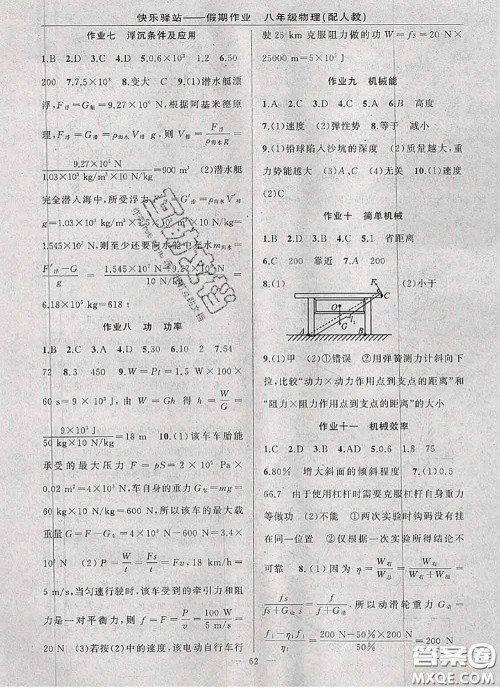 快乐驿站——假期作业　八年级物理(配人教)
作业七　浮沉条件及应用
1.B　2.D　3.C　4.D　5.0.6×10³　1.2
6.200　7.7.5×10³　8.变大　C　9.(1)潜水艇漂
浮, F浮=G艇=9.27×10⁶ N,根据阿基米德原
理, F浮=G排=ρ海水V排g,则V排=F浮/(ρ海水g)=
9.27×10⁶ N/(1.03×10³ kg/m³×10 N/kg)=900 m³　(2)潜水艇
完全潜入海中,所受浮力
=1.03×10³ kg/m³
10⁷ N,则至少还要向水舱中充水m海水=
(F′浮-G)/g=(1.545×10⁷ N-9.27×10⁶ N)/(10 N/kg)=
6.18×10⁵ kg=618 t
作业八　功　功率
1.B　2.C　3.A　4.D　5.30　6.10　2　7.54
72　8.450　9.W=Pt=1.5 W×10 N/kg×
60 s=9×10³ J,由W=Gh得h=W/G=
9×10³ J/(50 kg×10 N/kg)=18 m　10.(1)该车车胎能
承受的最大压力F=pS=2×10⁵ Pa×
0.02 m²=4×10³ N,车自身的重力G车=m车g
=50 kg×10 N/kg=500 N,该车的最大载重
G=F-G车=4×10³ N-500 N=3.5×10³ N
(2)由P=W/t=Fs/t=Fv,v=18 km/h=
5 m/s,当匀速行驶时,该车受到的牵引力和阻
力是一对平衡力,则f=F=P/v=100 W/5 m/s=
20 N　(3)若按(2)中的速度,该电动自行车行
驶25 km克服阻力做的功W=fs=20 N×
25000 m=5×10⁵ J
作业九　机械能
1.A　2.C　3.A　4.A　5.B　6.B　高度
7.(1)速度　(2)弹性势　8.等于　减小
9.(1)铅球陷入沙坑的深度　(2)质量越大,重
力势能越大　(3)A、C　(4)无关　10.(1)速度
(2)C
作业十　简单机械
1.B　2.D　3.C　4.C　5.1　省距离
6.C　200　靠近　7.A　5
8.(1)　(2)小于
F
C
A
O
l₁
G
B
9.(1)甲　(2)①错误　②用弹簧测力计斜向下
拉,比较“动力×动力作用点到支点的距离”和
“阻力×阻力作用点到支点的距离”的大小
作业十一　机械效率
1.B　2.D　3.B　4.D　5.0.6　1.8　75
6.80%　增大斜面的倾斜程度　7.(1)0.5
66.7　由于使用杠杆时需要克服杠杆自重力
等做功　(2)不能　①两次实验时钩码没有挂
在同一位置　②仅根据一次实验所得结论不
可靠　8.(1)因为η=W有/W总=W有/(W有+W额)=
fs/(fs+G动s)=f/(f+G动),所以动滑轮重力G动=
(f₁-η₁f₁)/η₁=(200 N-50%×200 N)/50%=200 N
62
答案圈
MXQE.COM